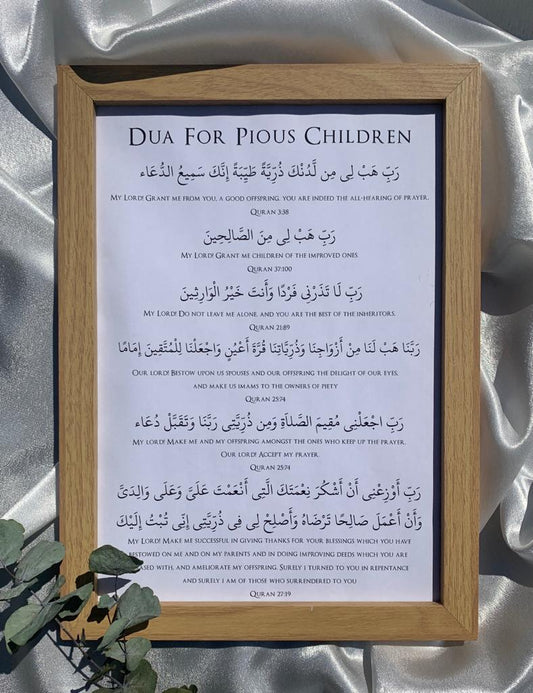 DUA FOR PIOUS CHILDREN
رَبِّ هَبْ لِى مِن لَّدُنْكَ ذُرِّيَّةً طَيِّبَةً إِنَّكَ سَمِيعُ الدُّعَاء
MY LORD! GRANT ME FROM YOU, A GOOD OFFSPRING, YOU ARE INDEED THE ALL-HEARING OF PRAYER.
QURAN 3:38
رَبِّ هَبْ لِى مِنَ الصَّالِحِينَ
MY LORD! GRANT ME CHILDREN OF THE IMPROVED ONES.
QURAN 37:100
رَبِّ لَا تَذَرْنِى فَرْدًا وَأَنتَ خَيْرُ الْوَارِثِينَ
MY LORD! DO NOT LEAVE ME ALONE, AND YOU ARE THE BEST OF THE INHERITORS.
QURAN 21:89
رَبَّنَا هَبْ لَنَا مِنْ أَزْوَاجِنَا وَذُرِّيَّاتِنَا قُرَّةَ أَعْيُنٍ وَاجْعَلْنَا لِلْمُتَّقِينَ إِمَامًا
OUR LORD! BESTOW UPON US SPOUSES AND OUR OFFSPRING THE DELIGHT OF OUR EYES,
AND MAKE US IMAMS TO THE OWNERS OF PIETY
QURAN 25:74
رَبِّ اجْعَلْنِى مُقِيمَ الصَّلَاةِ وَمِن ذُرِّيَّتِى رَبَّنَا وَتَقَبَّلْ دُعَاء
MY LORD! MAKE ME AND MY OFFSPRING AMONGST THE ONES WHO KEEP UP THE PRAYER,
OUR LORD! ACCEPT MY PRAYER.
QURAN 25:74
رَبِّ أَوْزِعْنِى أَنْ أَشْكُرَ نِعْمَتَكَ الَّتِى أَنْعَمْتَ عَلَىَّ وَعَلَى وَالِدَىَّ
وَأَنْ أَعْمَلَ صَالِحًا تَرْضَاهُ وَأَصْلِحْ لِى فِى ذُرِّيَّتِى إِنِّى تُبْتُ إِلَيْكَ
MY LORD! MAKE ME SUCCESSFUL IN GIVING THANKS FOR YOUR BLESSINGS WHICH YOU HAVE
BESTOWED ON ME AND ON MY PARENTS AND IN DOING IMPROVING DEEDS WHICH YOU ARE
ASED WITH, AND AMELIORATE MY OFFSPRING. SURELY I TURNED TO YOU IN REPENTANCE
AND SURELY I AM OF THOSE WHO SURRENDERED TO YOU
QURAN 27:19